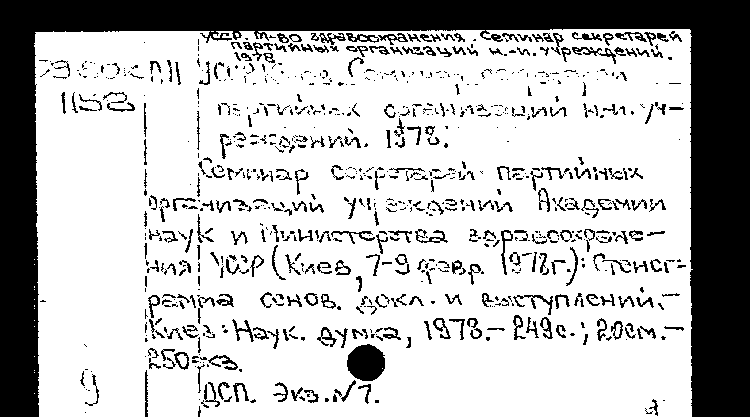 УССР. М-во здравоохранения. Семинар секретарей
партийных организаций н.-и. учреждений.
1978
УССР. Киев. Семинар секретарей
1158 партийных организаций н.-и. уч-
реждений. 1978.
Семинар секретарей партийных
организаций учреждений Академии
наук и Министерства здравоохране-
ния УССР (Киев, 7-9 февр. 1978г.): Стеног-
рамма основ. докл. и выступлений.-
Киев: Наук. думка, 1978.- 249с.; 20см.-
250экз.
9 ДСП. Экз.№7.